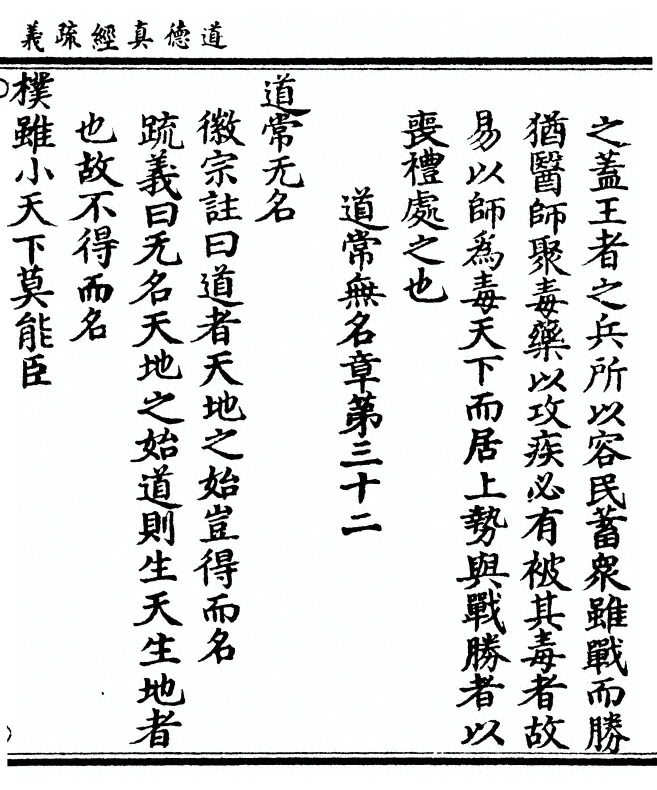 道德真經疏義
之蓋王者之兵所以容民蓄衆雖戰而勝
猶醫師聚毒藥以攻疾必有被其毒者故
易以師為毒天下而居上勢與戰勝者以
喪禮處之也
道常無名章第三十二
道常无名
徽宗註曰道者天地之始豈得而名
疏義曰无名天地之始道則生天生地者
也故不得而名
樸雖小天下莫能臣